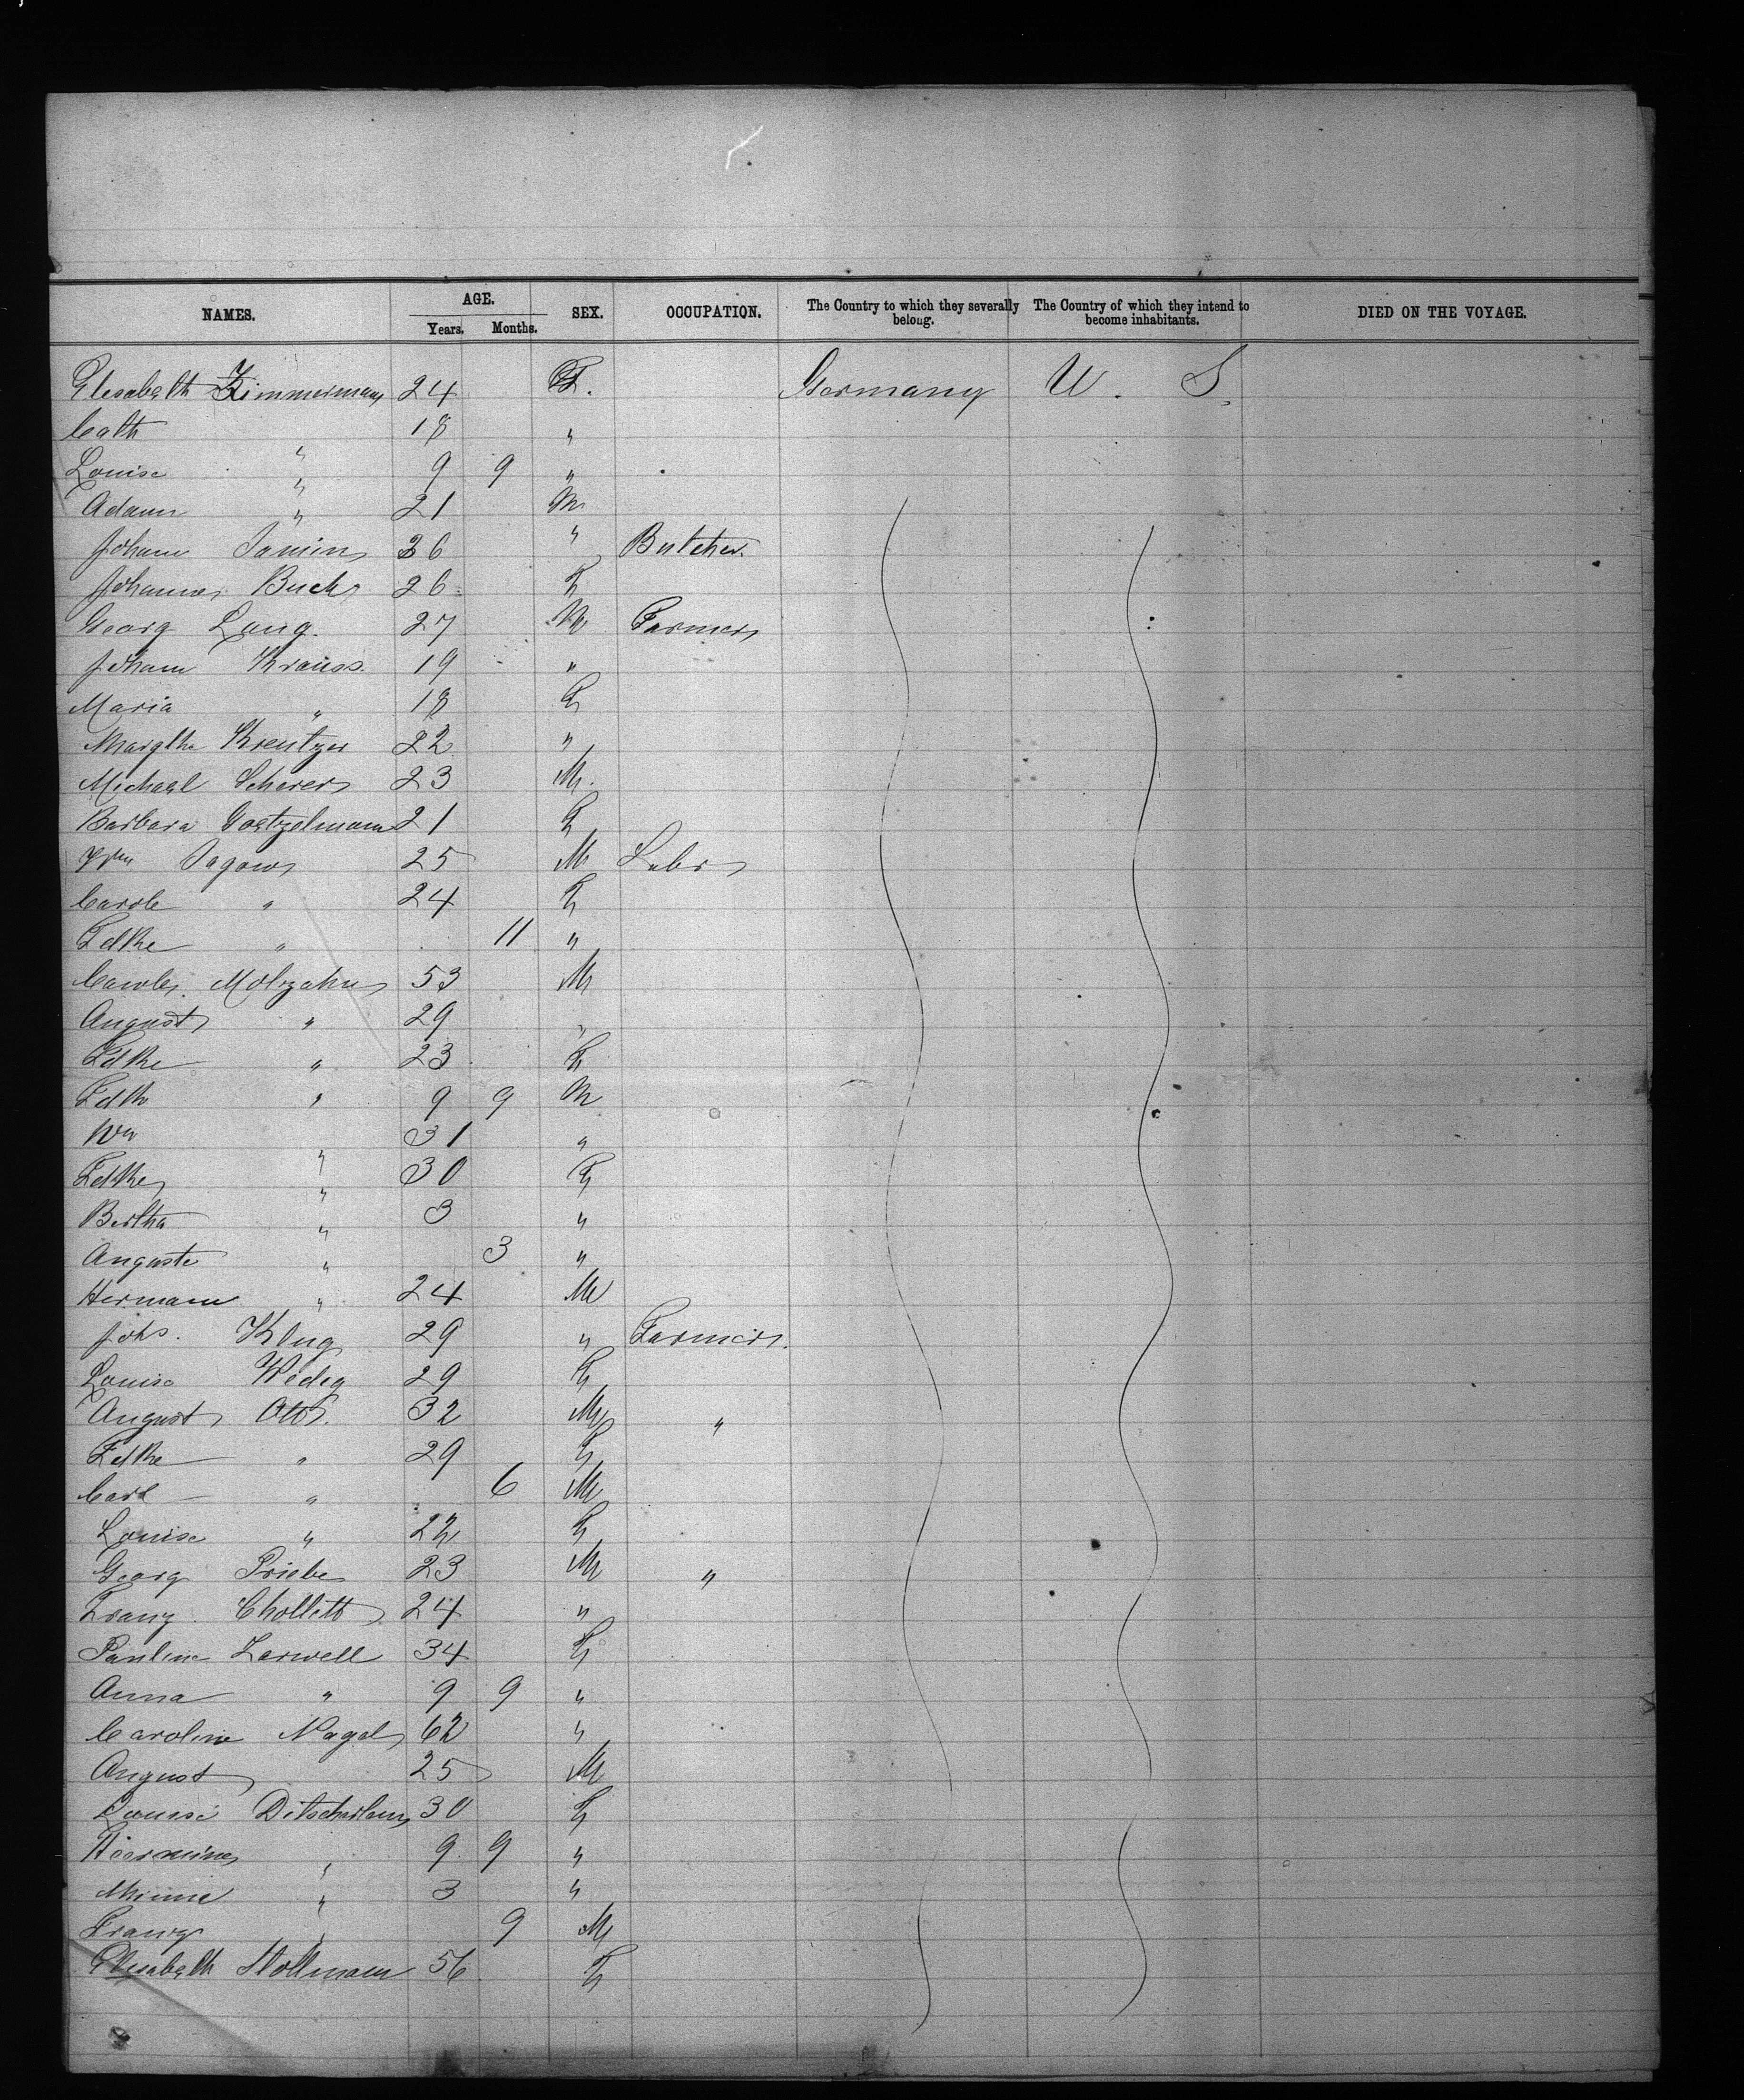 NAMES. AGE. Years. Months. SEX. OCCUPATION. The Country to which they severally belong. The Country of which they intend to become inhabitants. DIED ON THE VOYAGE.
Elesabeth Zimmermann 24 F. Germany U. S.
Cath " 18 "
Louise " 9 9 "
Adam " 21 M
Johann 26 " Butcher.
Johannes Buck 26 F
Georg Lang. 27 M Farmer
Johann Krauss. 19 "
Maria " 18 F
Margthe Kreutzer 22 "
Michael Scherer 23 M.
Barbara Goetzelmann 21 F
Wm Pagow 25 M Labr
Carole " 24 F
Fdke " 11 "
Molzahn 53 M
August " 29 "
Fdke " 23 F
Fdk " 9 9 M
Wm " 31 "
Fdke " 30 F
Bertha " 3 "
Auguste " 3 "
Hermann " 24 M
Johs. Klug 29 " Farmer.
Louise Wedig 29 F
August Otto. 32 M "
Fdke " 29 F
Carl " 6 M
Louise " 22 F
Georg Priebe 23 M "
Franz Chollett 24 "
Pauline Larwell 34 F
Anna " 9 9 "
Caroline Nagel 62 "
August 25 M
Louise 30 F
Hermine " 9 9 "
Minnie " 3 "
Franz " 9 M
Elisabeth Stollmann 56 F